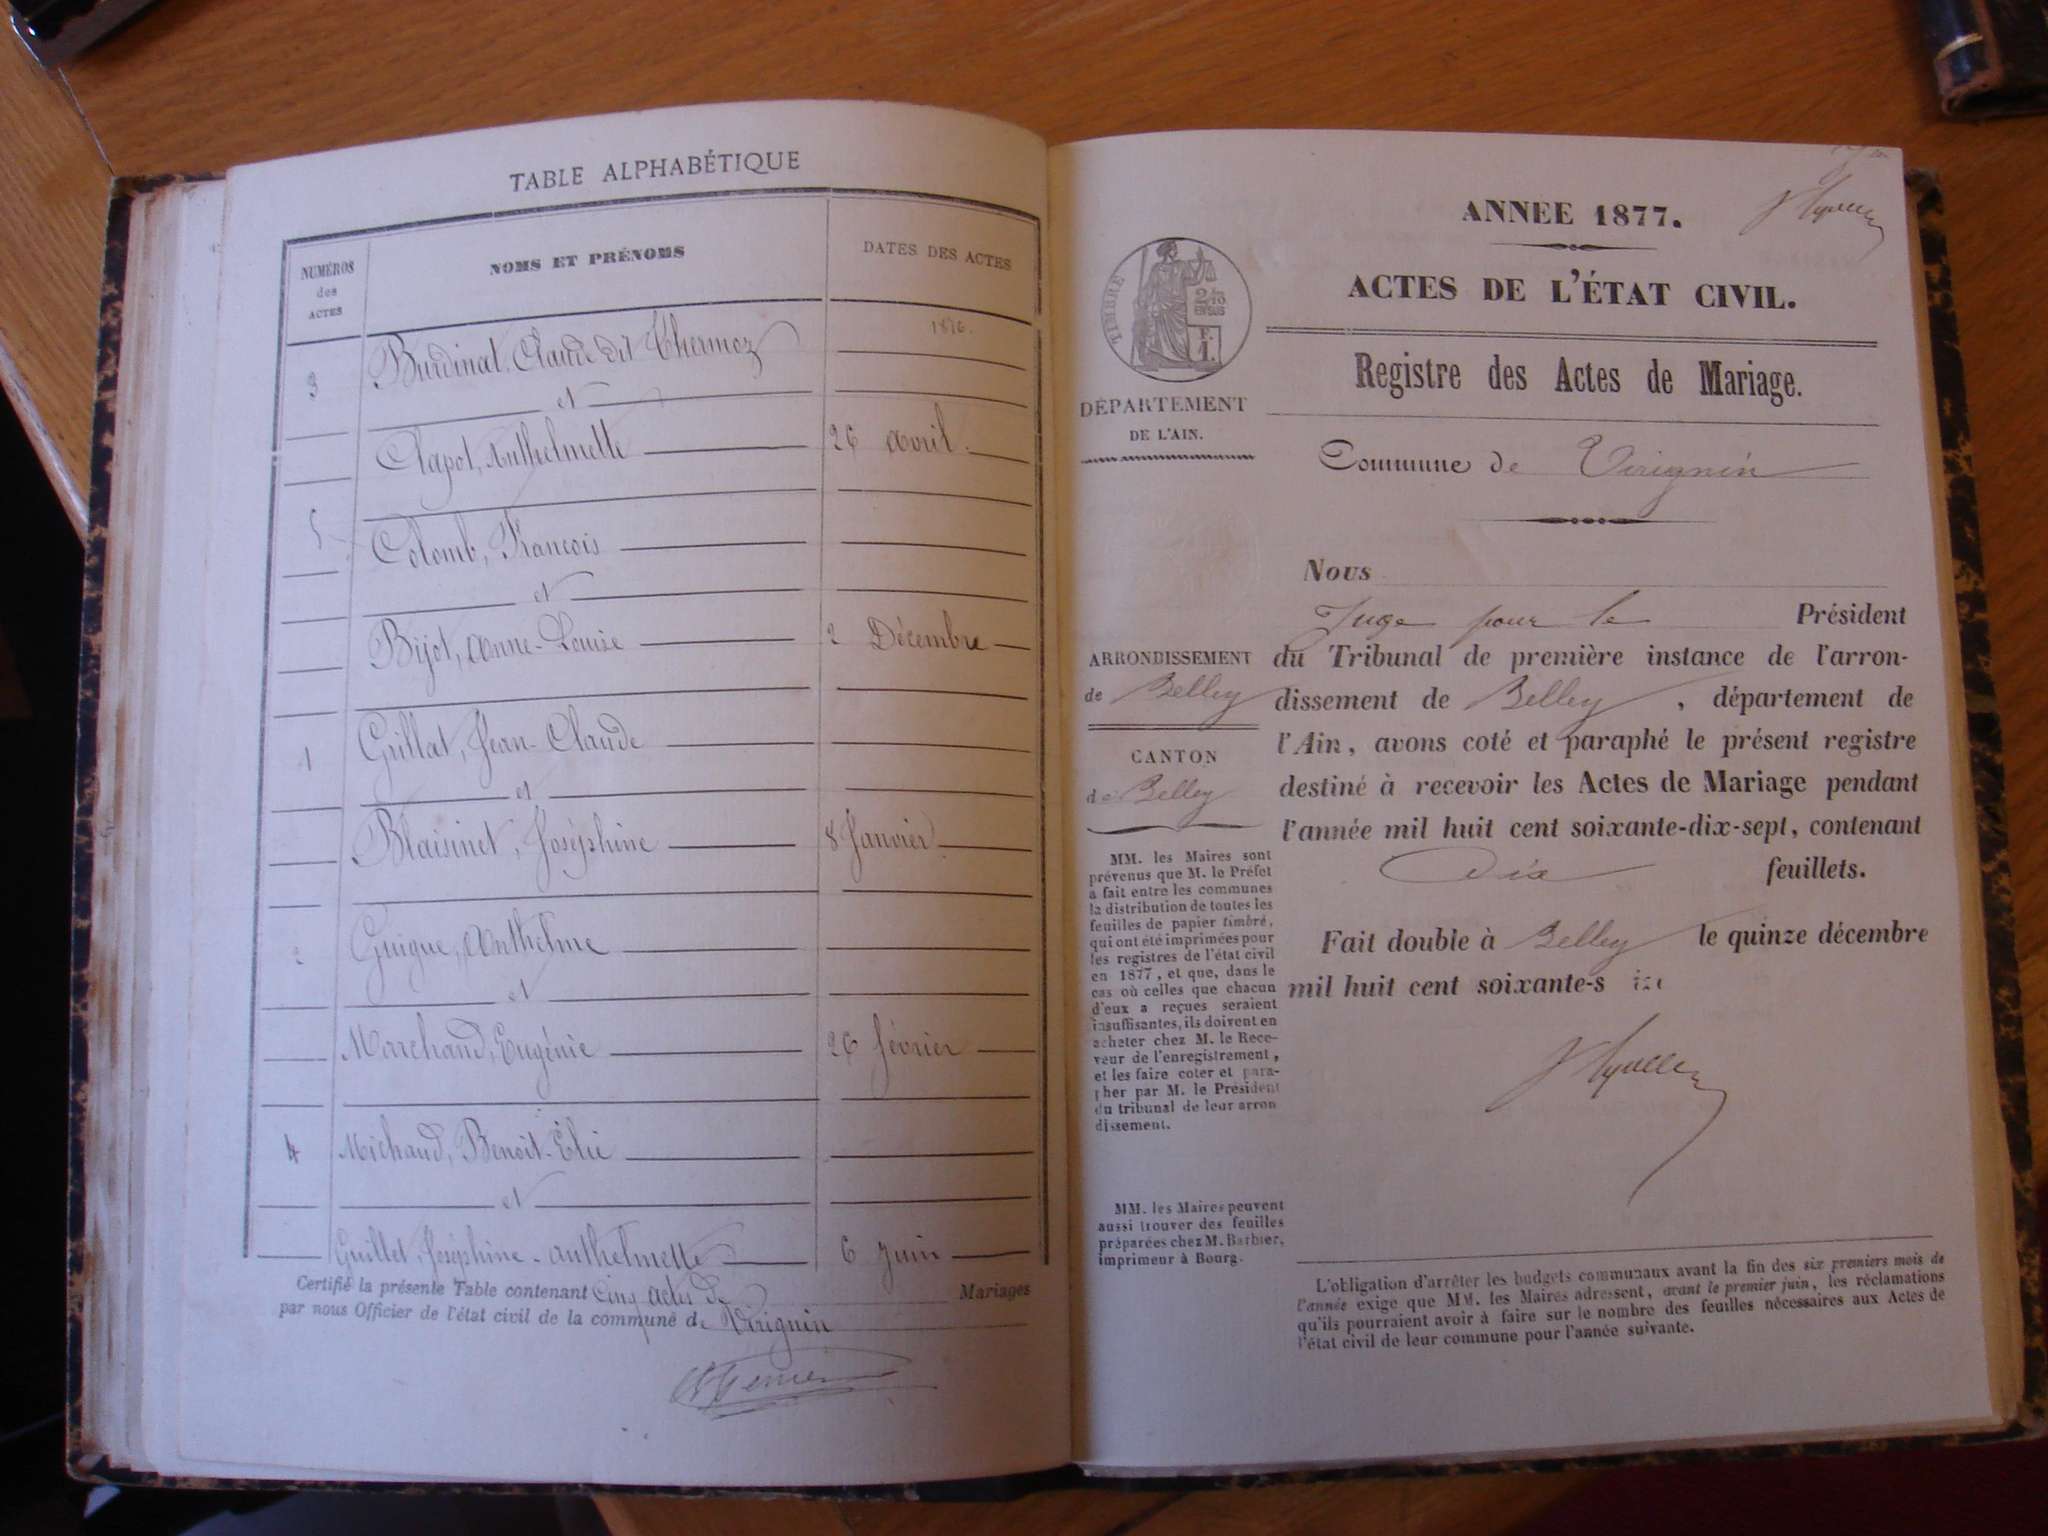 TABLE ALPHABÉTIQUE
NUMÉROS des ACTES
NOMS ET PRÉNOMS
DATES DES ACTES
1876.
3 Burdinat, Claude dit Thermoz
et
Clapot, Anthelmette 26 avril.
5 Colomb, François
et
Bijot, Anne-Louise 2 Décembre
1 Grillat, Jean-Claude
et
Blaisinet, Joséphine 8 Janvier
2 Guigue, Anthelme
et
Marchand, Eugénie 26 février
4 Michaud, Benoit-Elie
et
Guillet, Joséphine-anthelmette 6 Juin
Certifié la présente Table contenant Cinq actes de Mariages
par nous Officier de l'état civil de la commune de Virignin
ANNÉE 1877.
ACTES DE L'ÉTAT CIVIL.
TIMBRE
2/10
EN SUS
F.
1.
Registre des Actes de Mariage.
DÉPARTEMENT
DE L'AIN.
Commune de Virignin
Nous
Juge pour le Président
du Tribunal de première instance de l'arron-
dissement de Belley, département de
l'Ain, avons coté et paraphé le présent registre
destiné à recevoir les Actes de Mariage pendant
l'année mil huit cent soixante-dix-sept, contenant
Dix feuillets.
Fait double à Belley le quinze décembre
mil huit cent soixante-s
ARRONDISSEMENT
de Belley
CANTON
de Belley
MM. les Maires sont
prévenus que M. le Préfet
a fait entre les communes
la distribution de toutes les
feuilles de papier timbré,
qui ont été imprimées pour
les registres de l'état civil
en 1877, et que, dans le
cas où celles que chacun
d'eux a reçues seraient
insuffisantes, ils doivent en
acheter chez M. le Rece-
veur de l'enregistrement,
et les faire coter et para-
pher par M. le Président
du tribunal de leur arron
dissement.
MM. les Maires peuvent
aussi trouver des feuilles
préparées chez M. Barbier,
imprimeur à Bourg.
L'obligation d'arrêter les budgets communaux avant la fin des six premiers mois de
l'année exige que MM. les Maires adressent, avant le premier juin, les réclamations
qu'ils pourraient avoir à faire sur le nombre des feuilles nécessaires aux Actes de
l'état civil de leur commune pour l'année suivante.